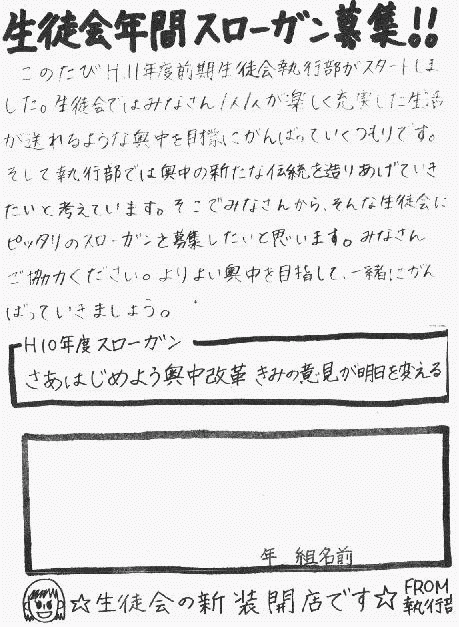 生徒会年間スローガン募集!!
このたびH.11年度前期生徒会執行部がスタートしま
した。生徒会ではみなさん1人1人が楽しく充実した生活
が送れるような輿中を目標にがんばっていくつもりです。
そして執行部では輿中の新たな伝統を造りあげていき
たいと考えています。そこでみなさんから、そんな生徒会に
ピッタリのスローガンを募集したいと思います。みなさん
ご協力ください。よりよい輿中を目指して、一緒にがん
ばっていきましょう。
H10年度スローガン
さあはじめよう輿中改革 きみの意見が明日を変える
年 組名前
☆生徒会の新装開店です☆
FROM
執行部